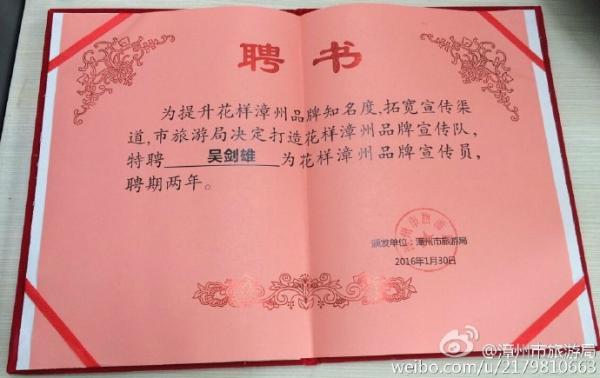 聘书
为提升花样漳州品牌知名度,拓宽宣传渠
道,市旅游局决定打造花样漳州品牌宣传队,
特聘 吴剑雄 为花样漳州品牌宣传员,
聘期两年。
颁发单位：漳州市旅游局
2016年1月30日
@漳州市旅游局
weibo.com/u/2179810663